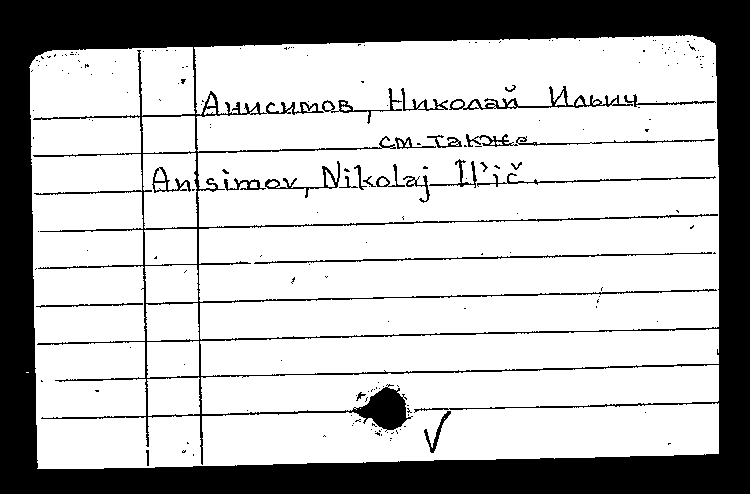 Анисимов, Николай Ильич
см. также
Anisimov, Nikolaj Il'ič.